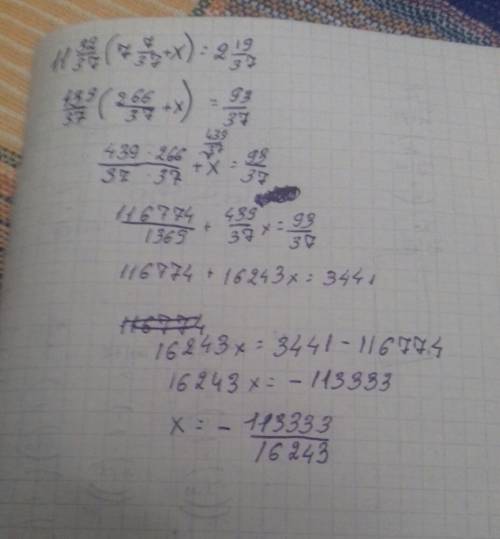 11 32/37 (7 7/37 + x) = 2 19/37
439/37 (266/37 + x) = 93/37
439 · 266 / 37 · 37 + 439/37 x = 93/37
116774/1369 + 439/37 x = 93/37
116774 + 16243x = 3441
116774
16243x = 3441 - 116774
16243x = - 113333
x = - 113333/16243